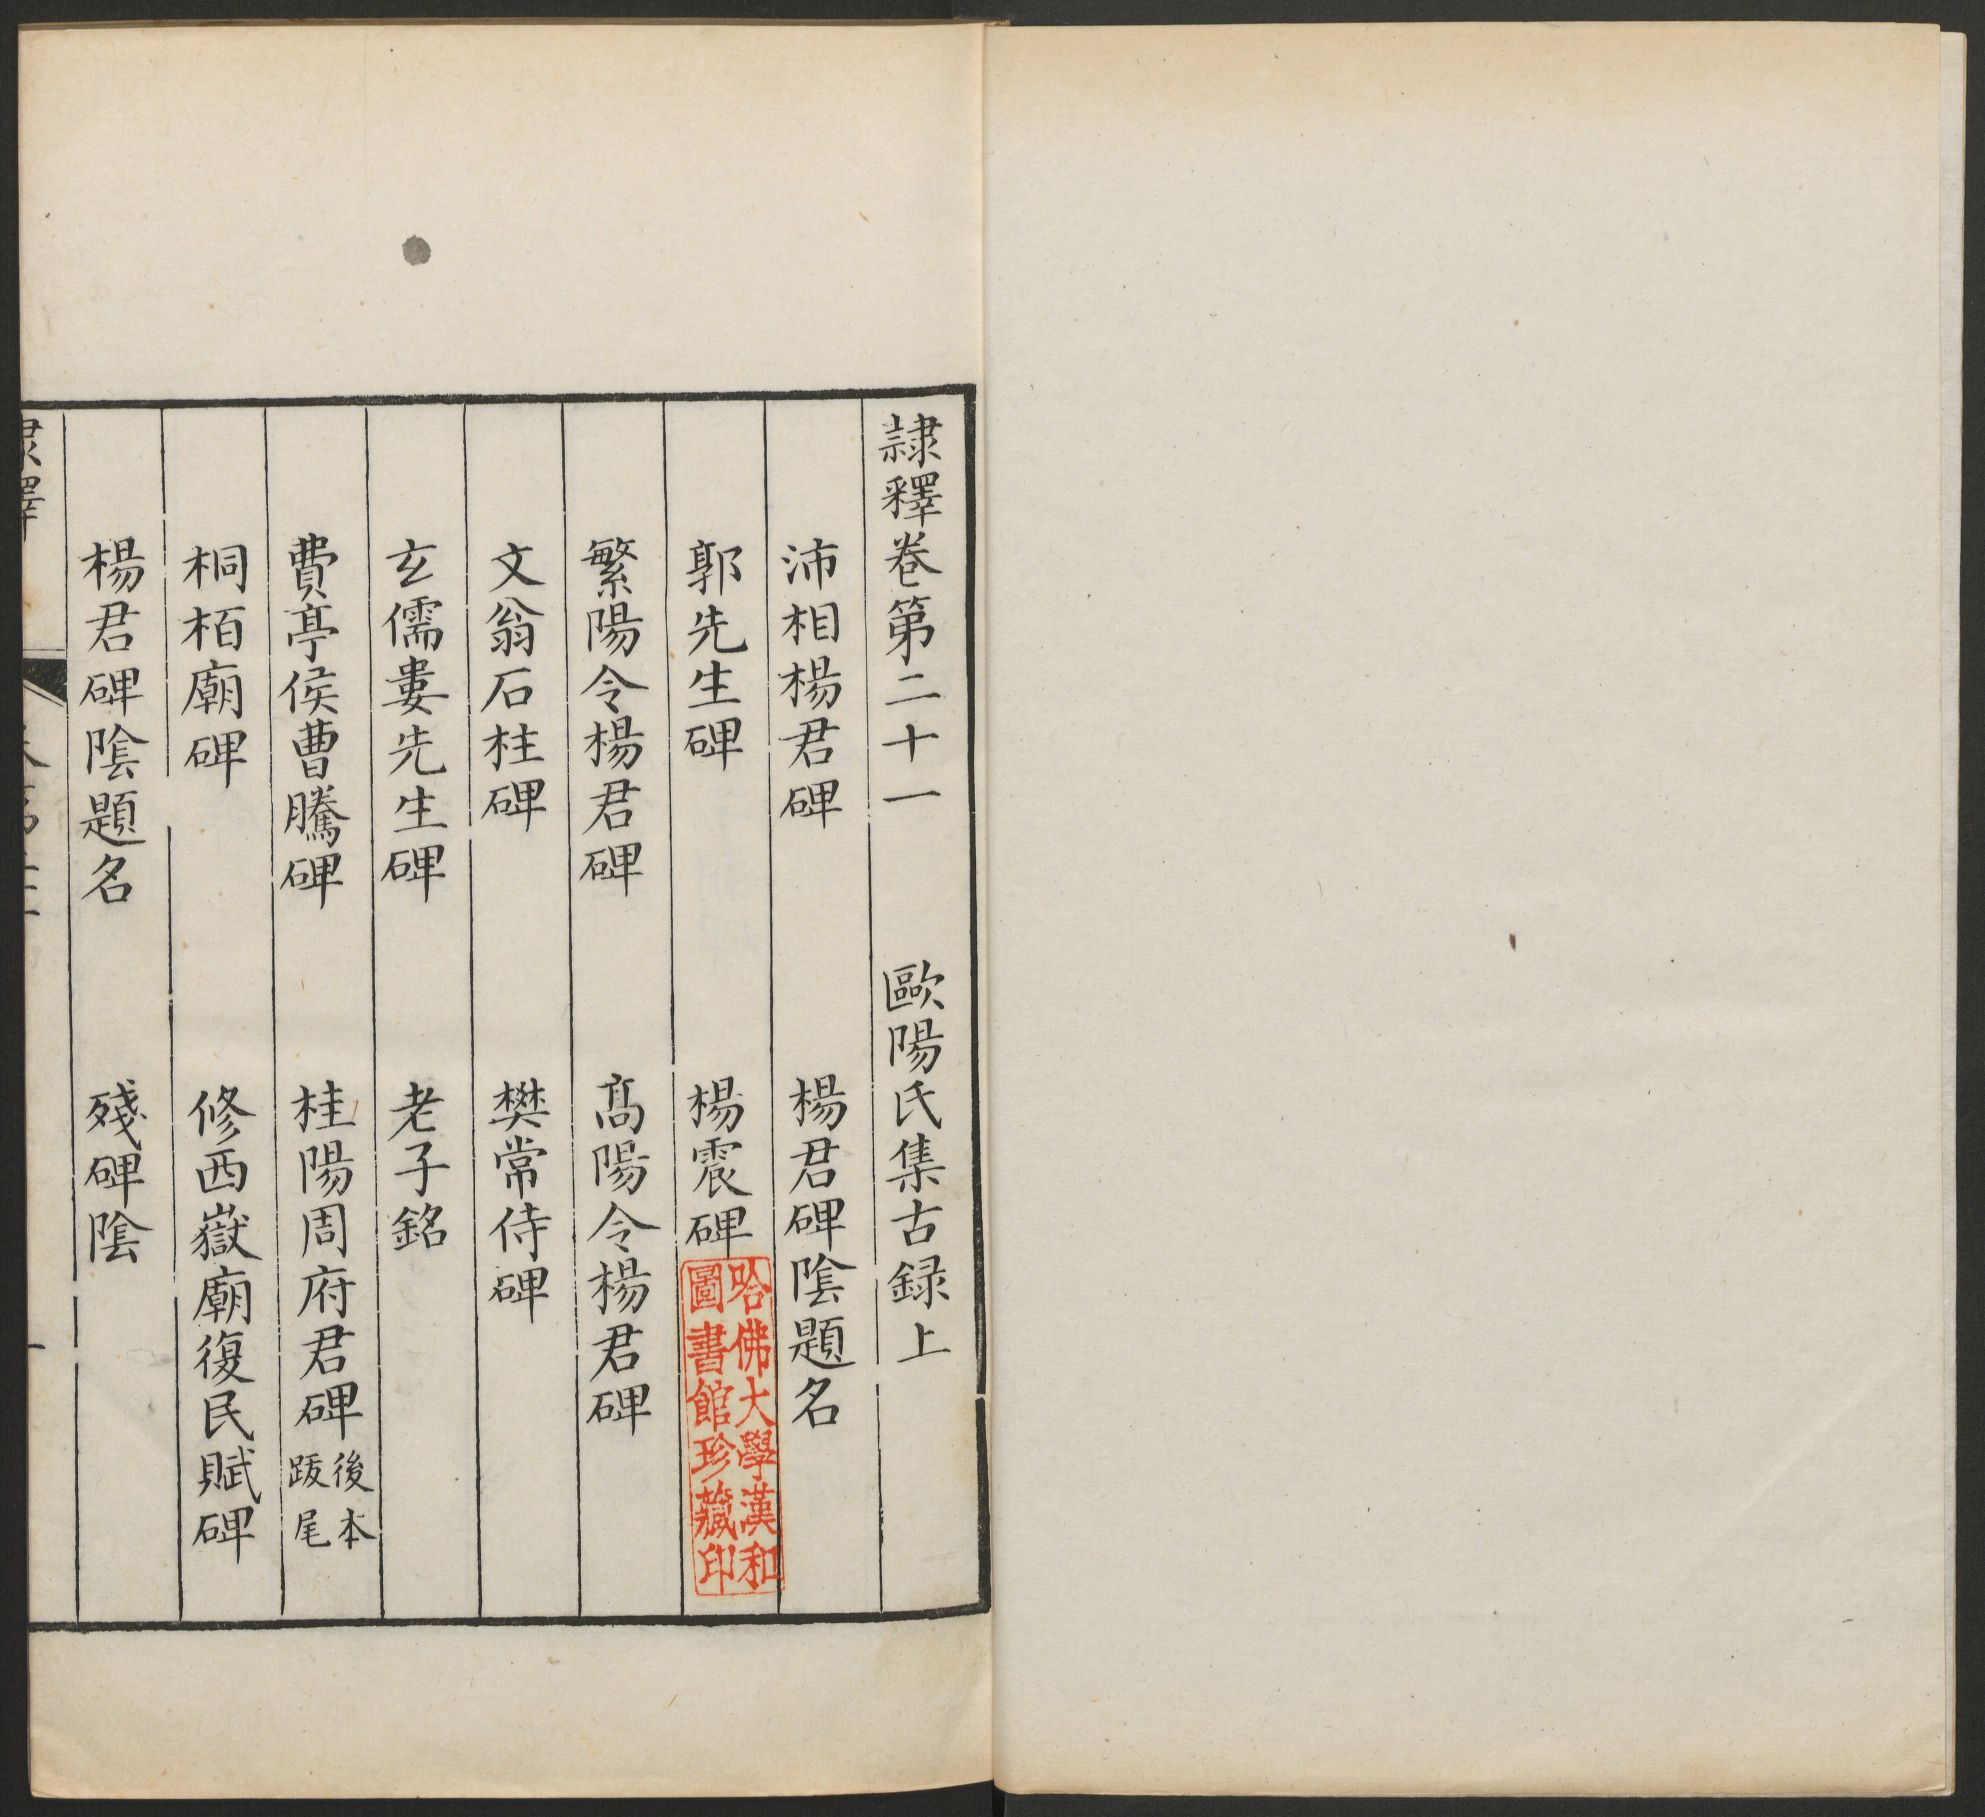 隷釋卷第二十一　歐陽氏集古録上
沛相楊君碑　楊君碑陰題名
郭先生碑　楊震碑
繁陽令楊君碑　髙陽令楊君碑
文翁石柱碑　樊常侍碑
玄儒婁先生碑　老子銘
費亭侯曹騰碑　桂陽周府君碑後本跋尾
桐栢廟碑　修西嶽廟復民賦碑
楊君碑陰題名　殘碑陰
隷釋
一
哈佛大學漢和
圖書館珍藏印